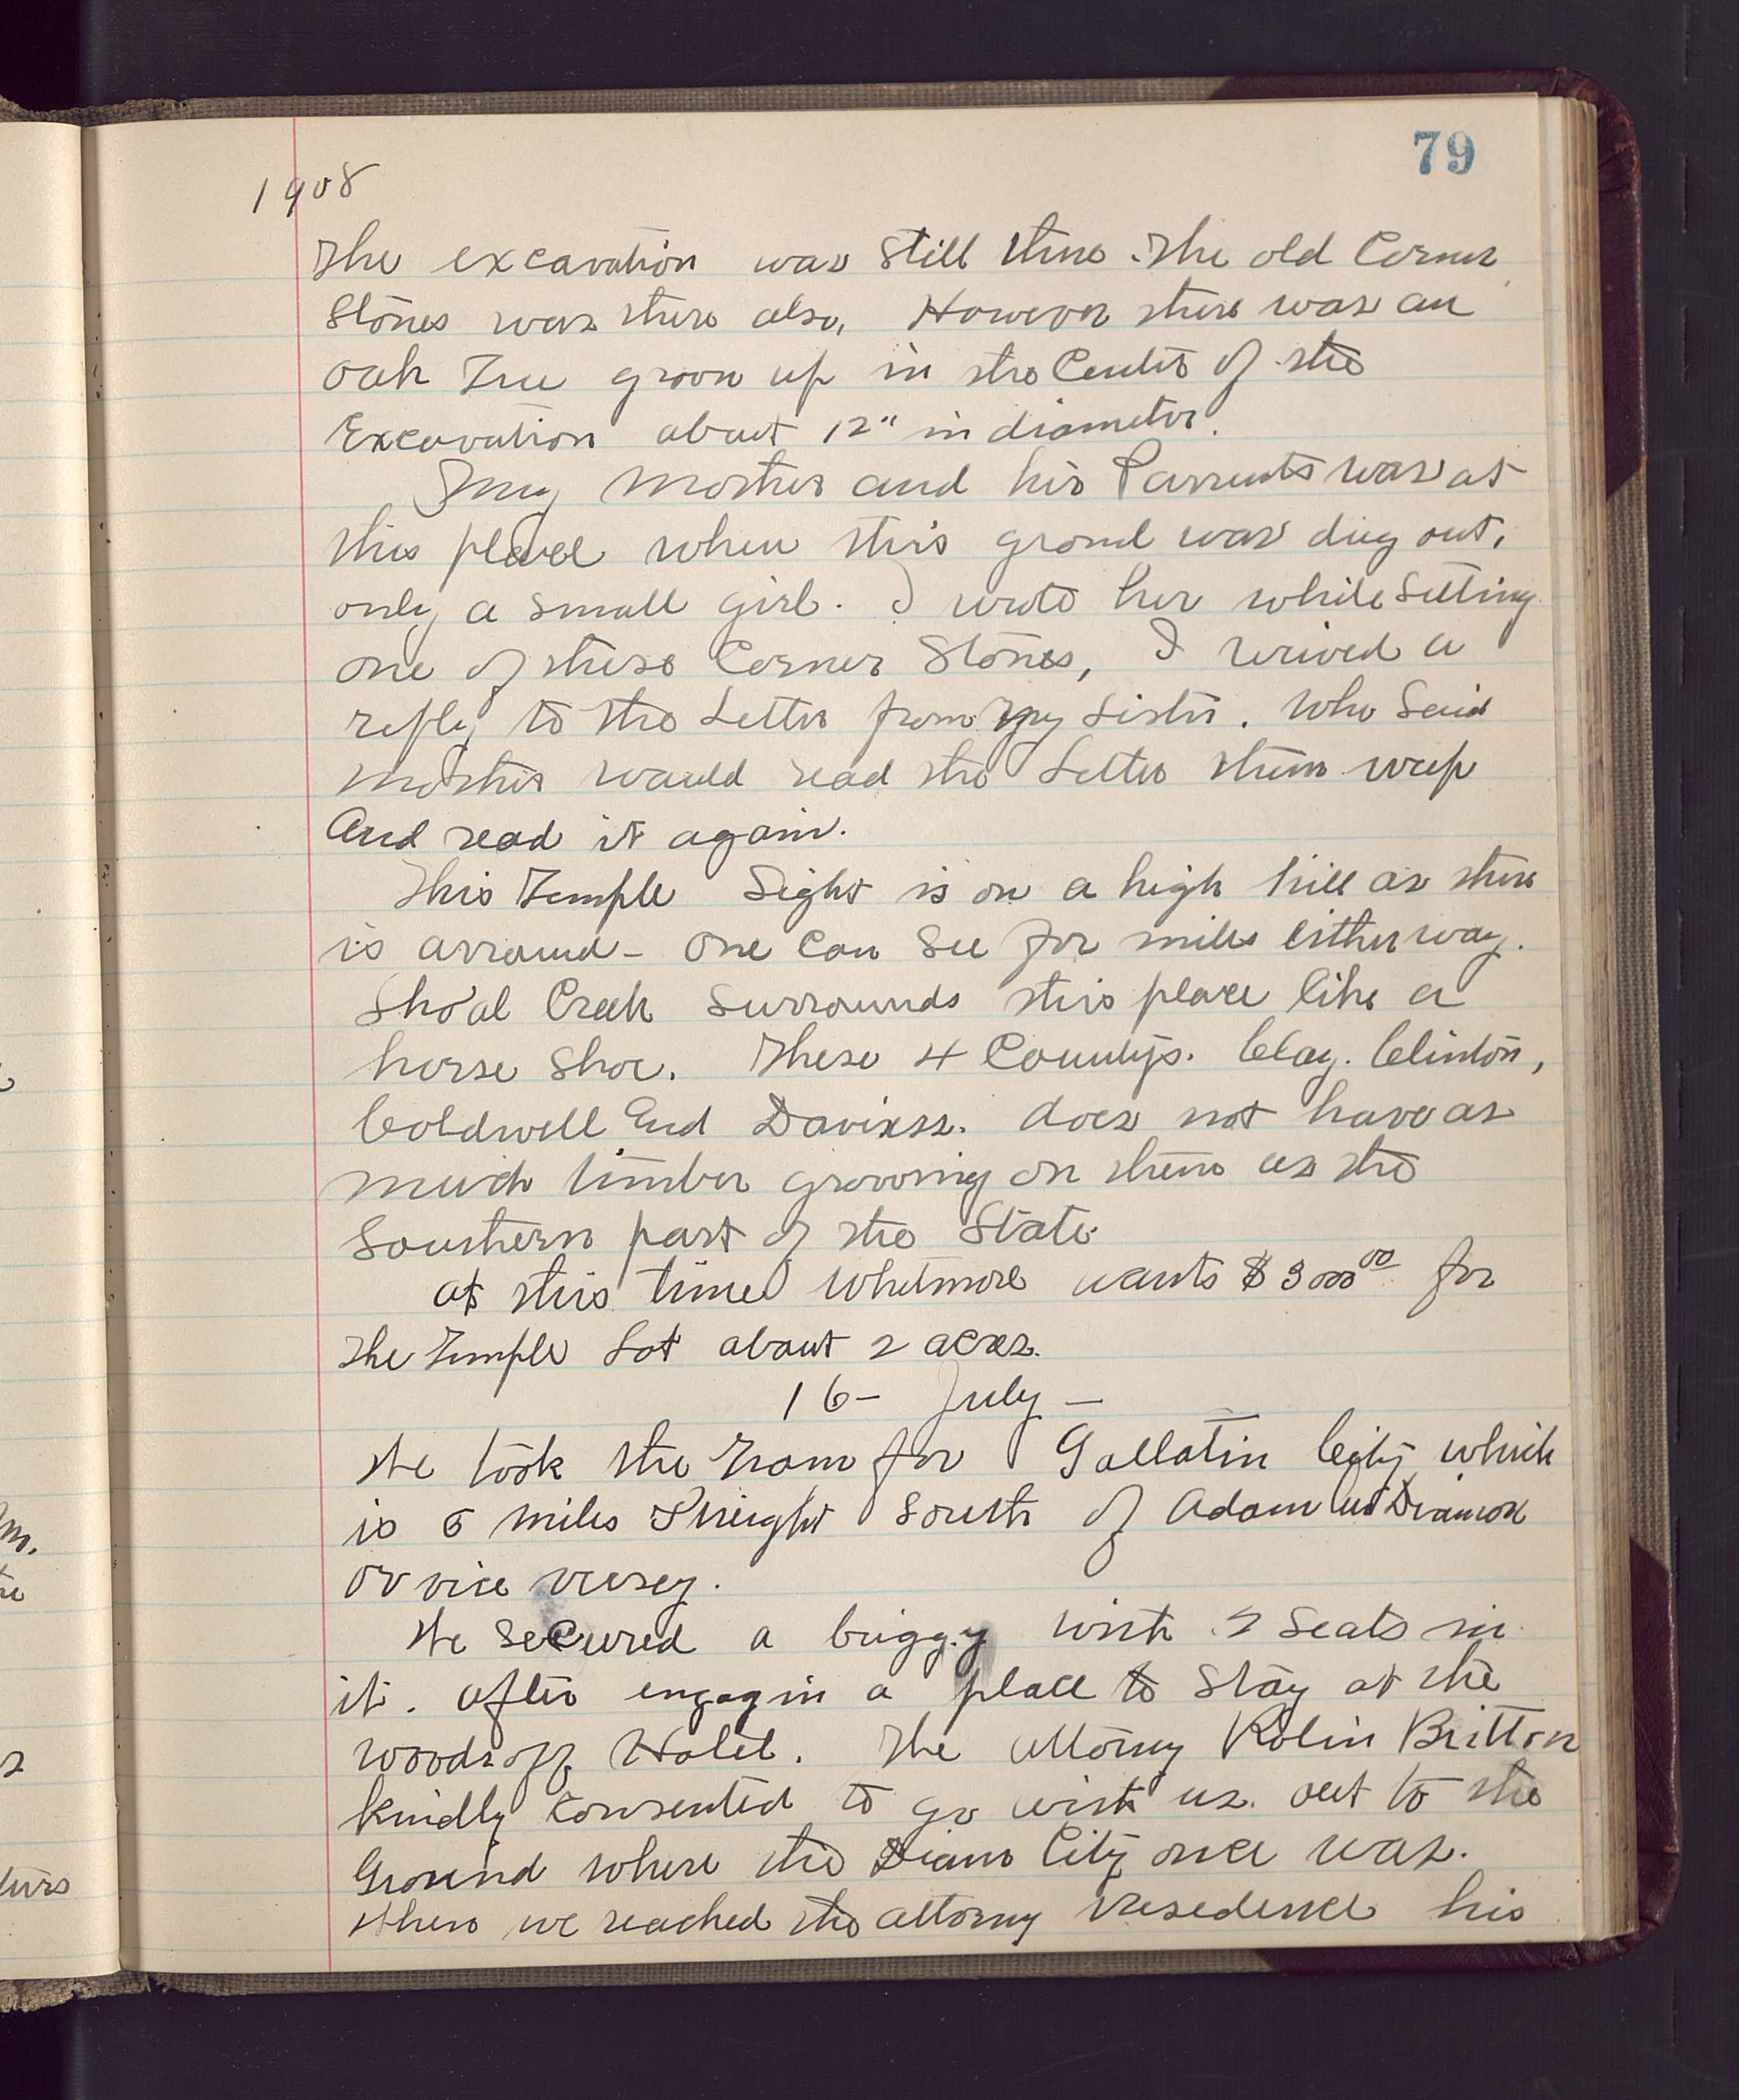 79
1908
The excavation was still there. The old Corner
Stones was there also, However there was an
oak Tree grown up in the Center of the
Excavation about 12" in diameter.
My Mother and his Parrents was at
this place when this grond was dug out,
only a small girl. I wrote her while Setting
one of these Corner Stones, I reived a
reply to the Letter from My Sister. Who Said
mother would read the Letter then weep
And read it again.
This Temple Sight is on a high hill as there
is arround - One Can See for miles either way.
Shoal Creek Surrounds this place like a
horse Shoe. These 4 Countys. Clay. Clinton,
Coldwell And Daviess. does not have as
much timber growing on them as the
Southern part of the State.
at this time Whitmore wants $3000.00 for
The Temple Lot about 2 acres.
16- July -
We took the Train for Gallatin City which
is 5 miles Streight South of Adam ondDiamon
or vice versey.
We secured a buggy with 2 Seats in
it. after engagin a place to Stay at the
Woodsoff Hotel. The attorny Rolin Britton
kindly consented to go with us. out to the
Ground where the Diam City once was.
When we reached the attorny Resedence his